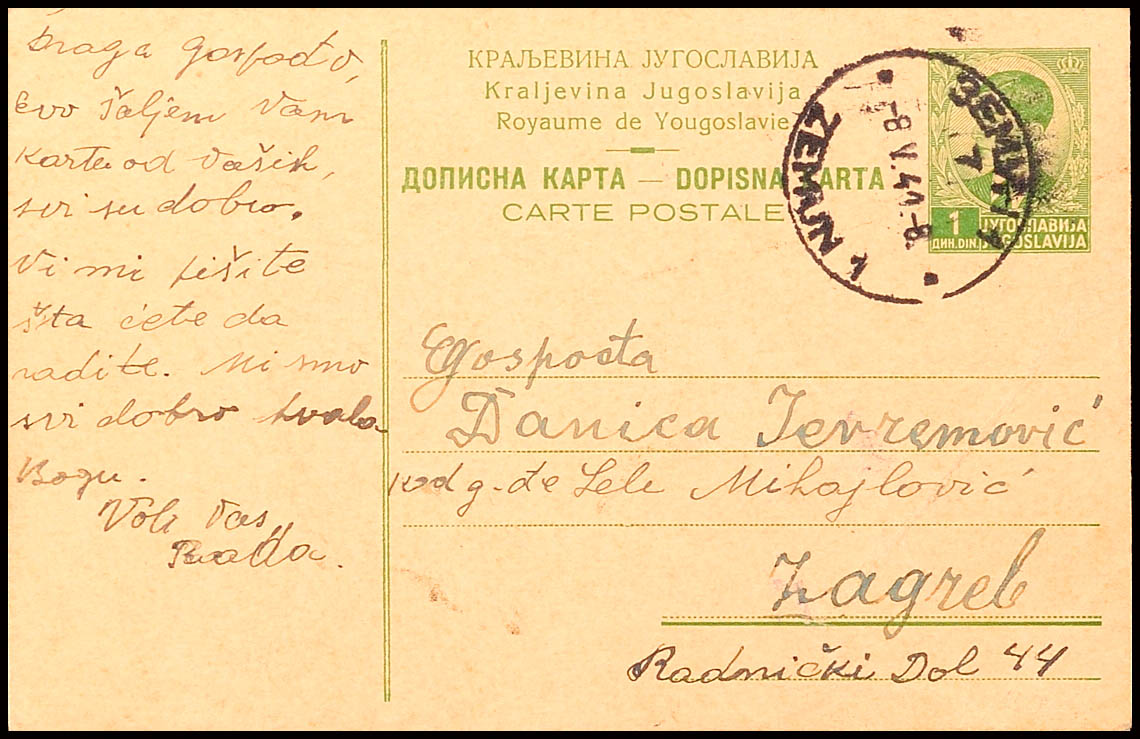 Draga gospođo,
Evo šaljem Vam
karta od Vaših,
svi su dobro.
Vi mi pišite
šta ćete da
radite. Mi smo
svi dobro hvala
Bogu.
Voli Vas,
КРАЉЕВИНА ЈУГОСЛАВИЈА
Kraljevina Jugoslavija
Royaume de Yougoslavie
ДОПИСНА КАРТА — DOPISNA KARTA
CARTE POSTALE
ЗЕМУН 1
ZEMUN 1
-8.V.41.-8
1
ДИН.DIN.
ЈУГОСЛАВИЈА
JUGOSLAVIJA
Gospođa
Danica Jevremović
kod g-đe Lele Mihajlović
Zagreb
Radnički Dol 44